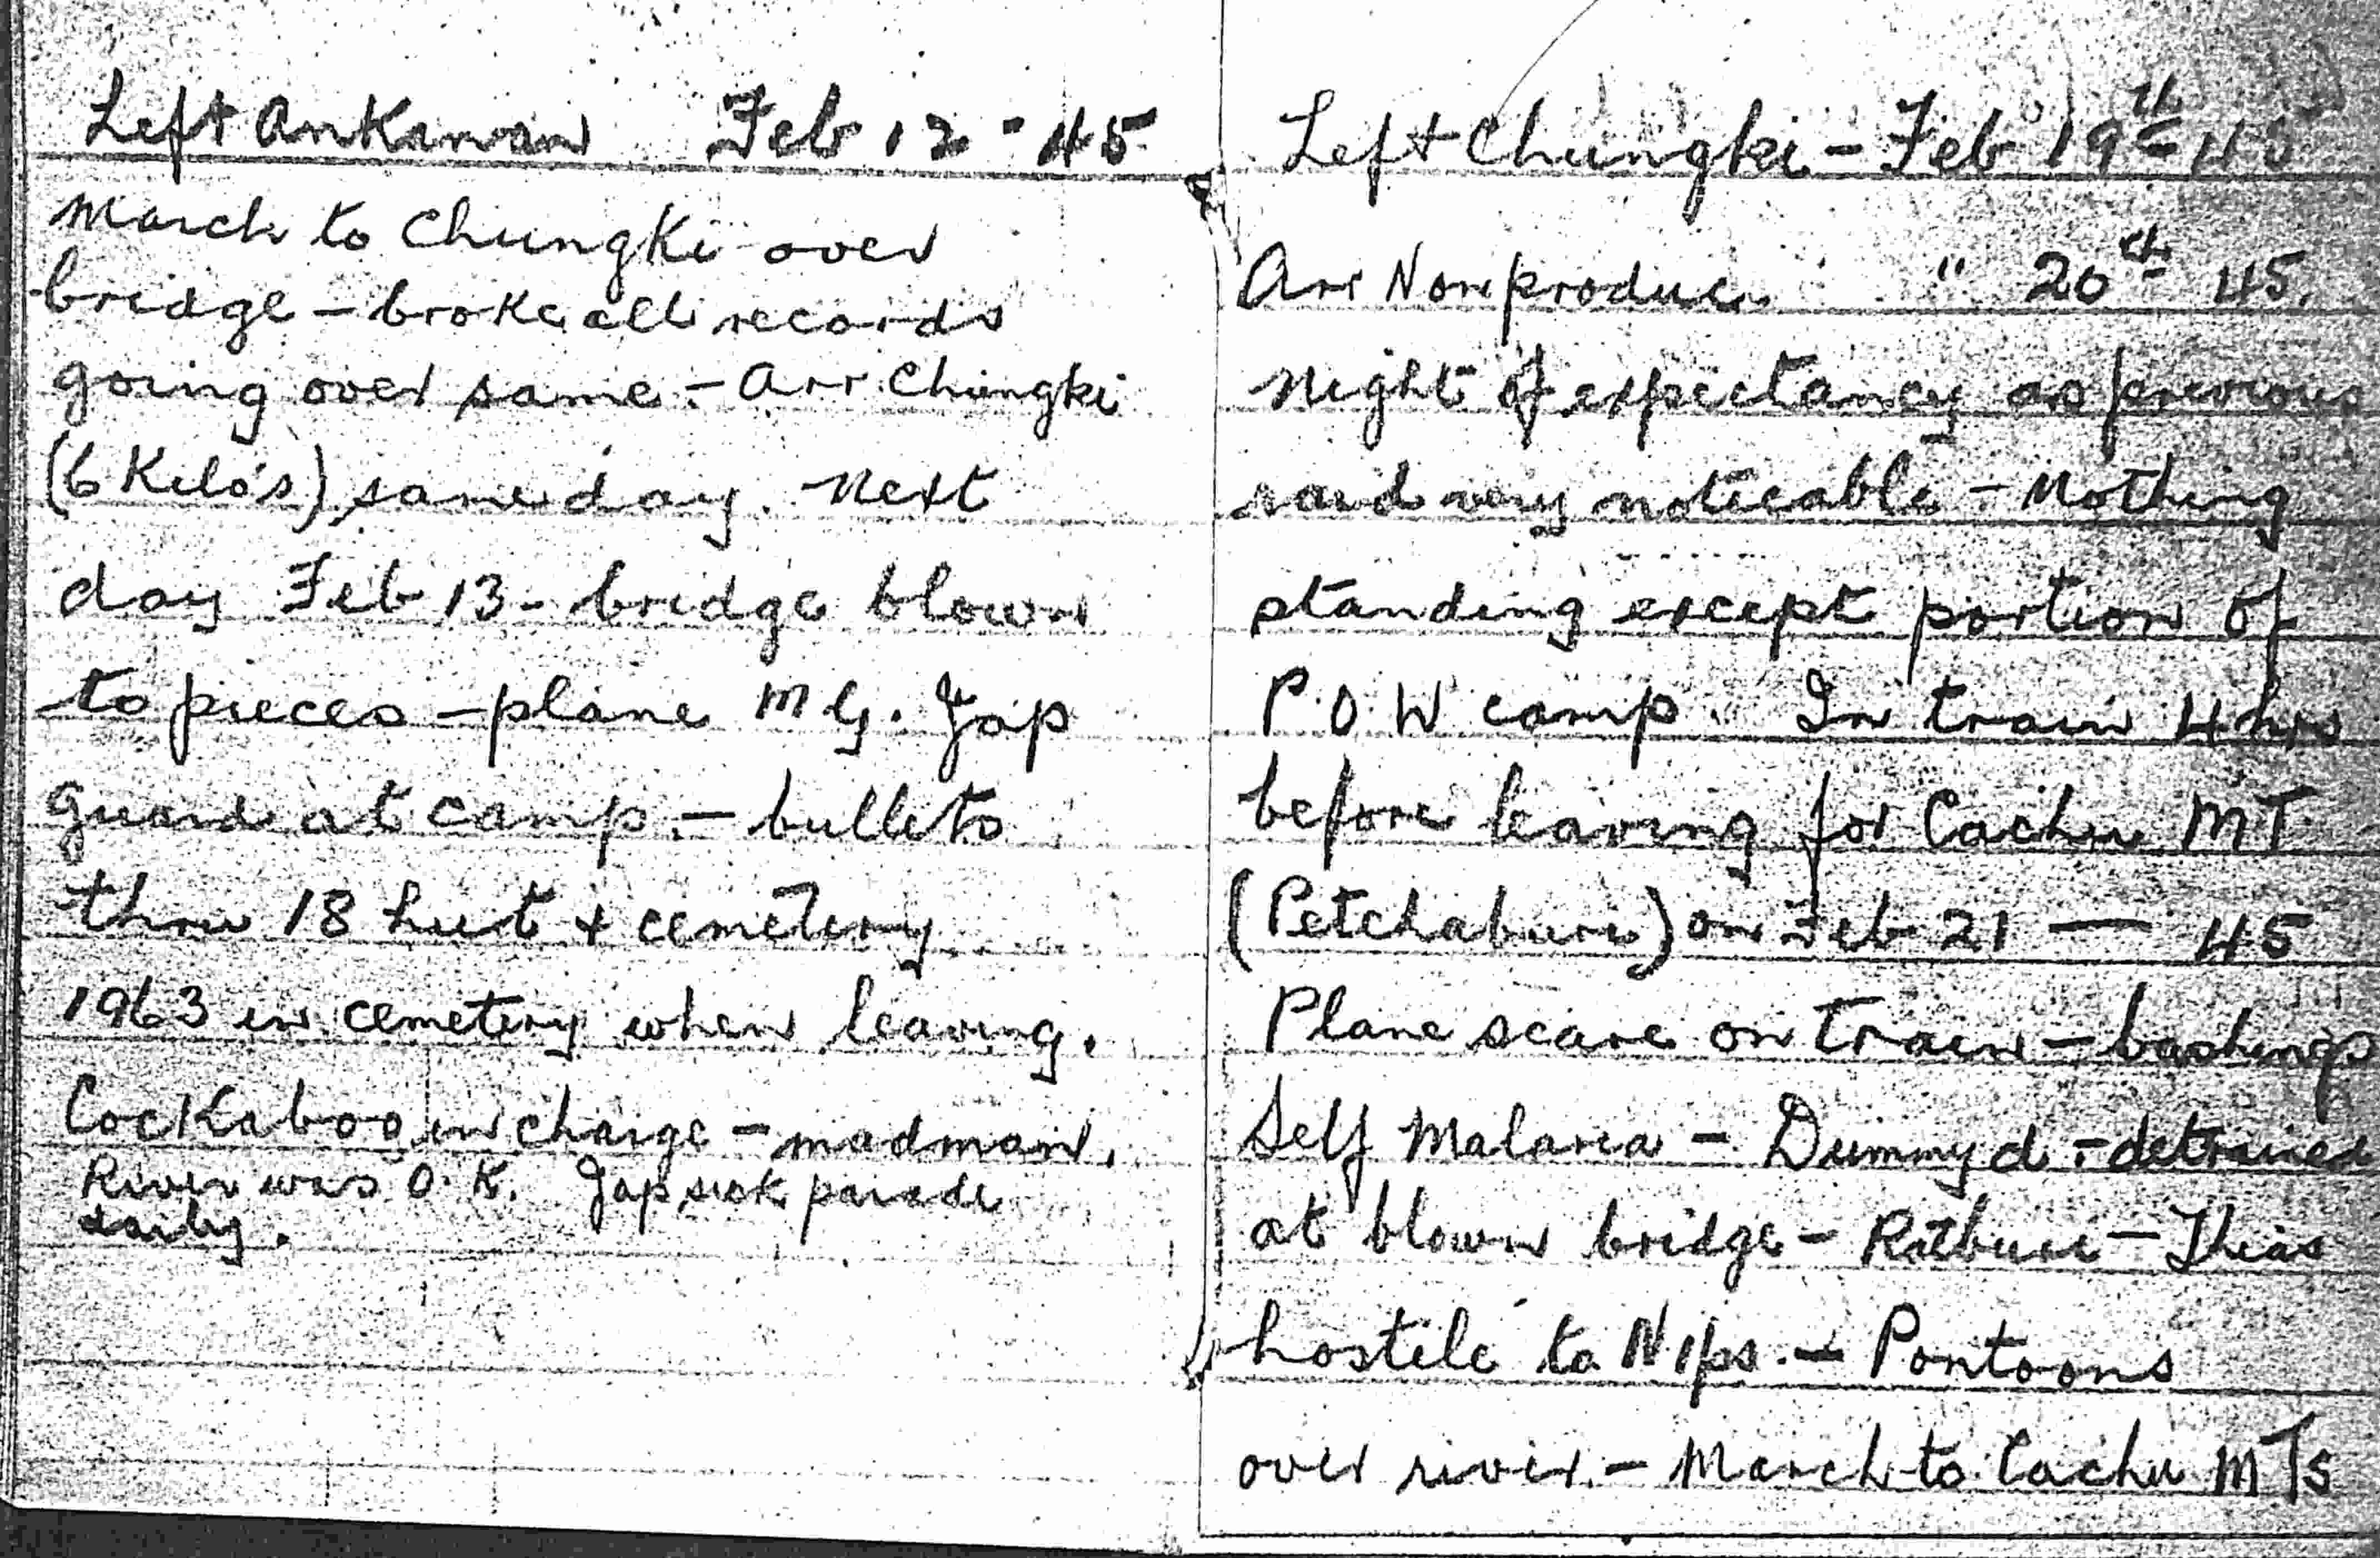 Left Ankanan Feb 12 - 45
March to Chungki over
bridge - broke all records
going over same - Arr Chungki
(6 Kilo's) same day. Next
day Feb 13 - bridge blown
to pieces - plane M G. Jap
guard at camp. - bullets
thru 18 hut + cemetery
1963 in cemetery when leaving.
Cockaboo in charge - madman.
River was O.K. Jap sick parade
daily.
Left Chungki - Feb 19th 45
Arr Nonproduc " 20th 45.
Night of expectancy as previous
raid very noticable - Nothing
standing except portion of
P.O.W camp. In train 4 hrs
before leaving for Cachu MT
(Petchaburi) on Feb 21 — 45
Plane scare on train - bashings
Self Malaria - Dummy d - detrained
at blown bridge - Ratburi - Thias
hostile to Nips. - Pontoons
over river. - March to Cachu MTs